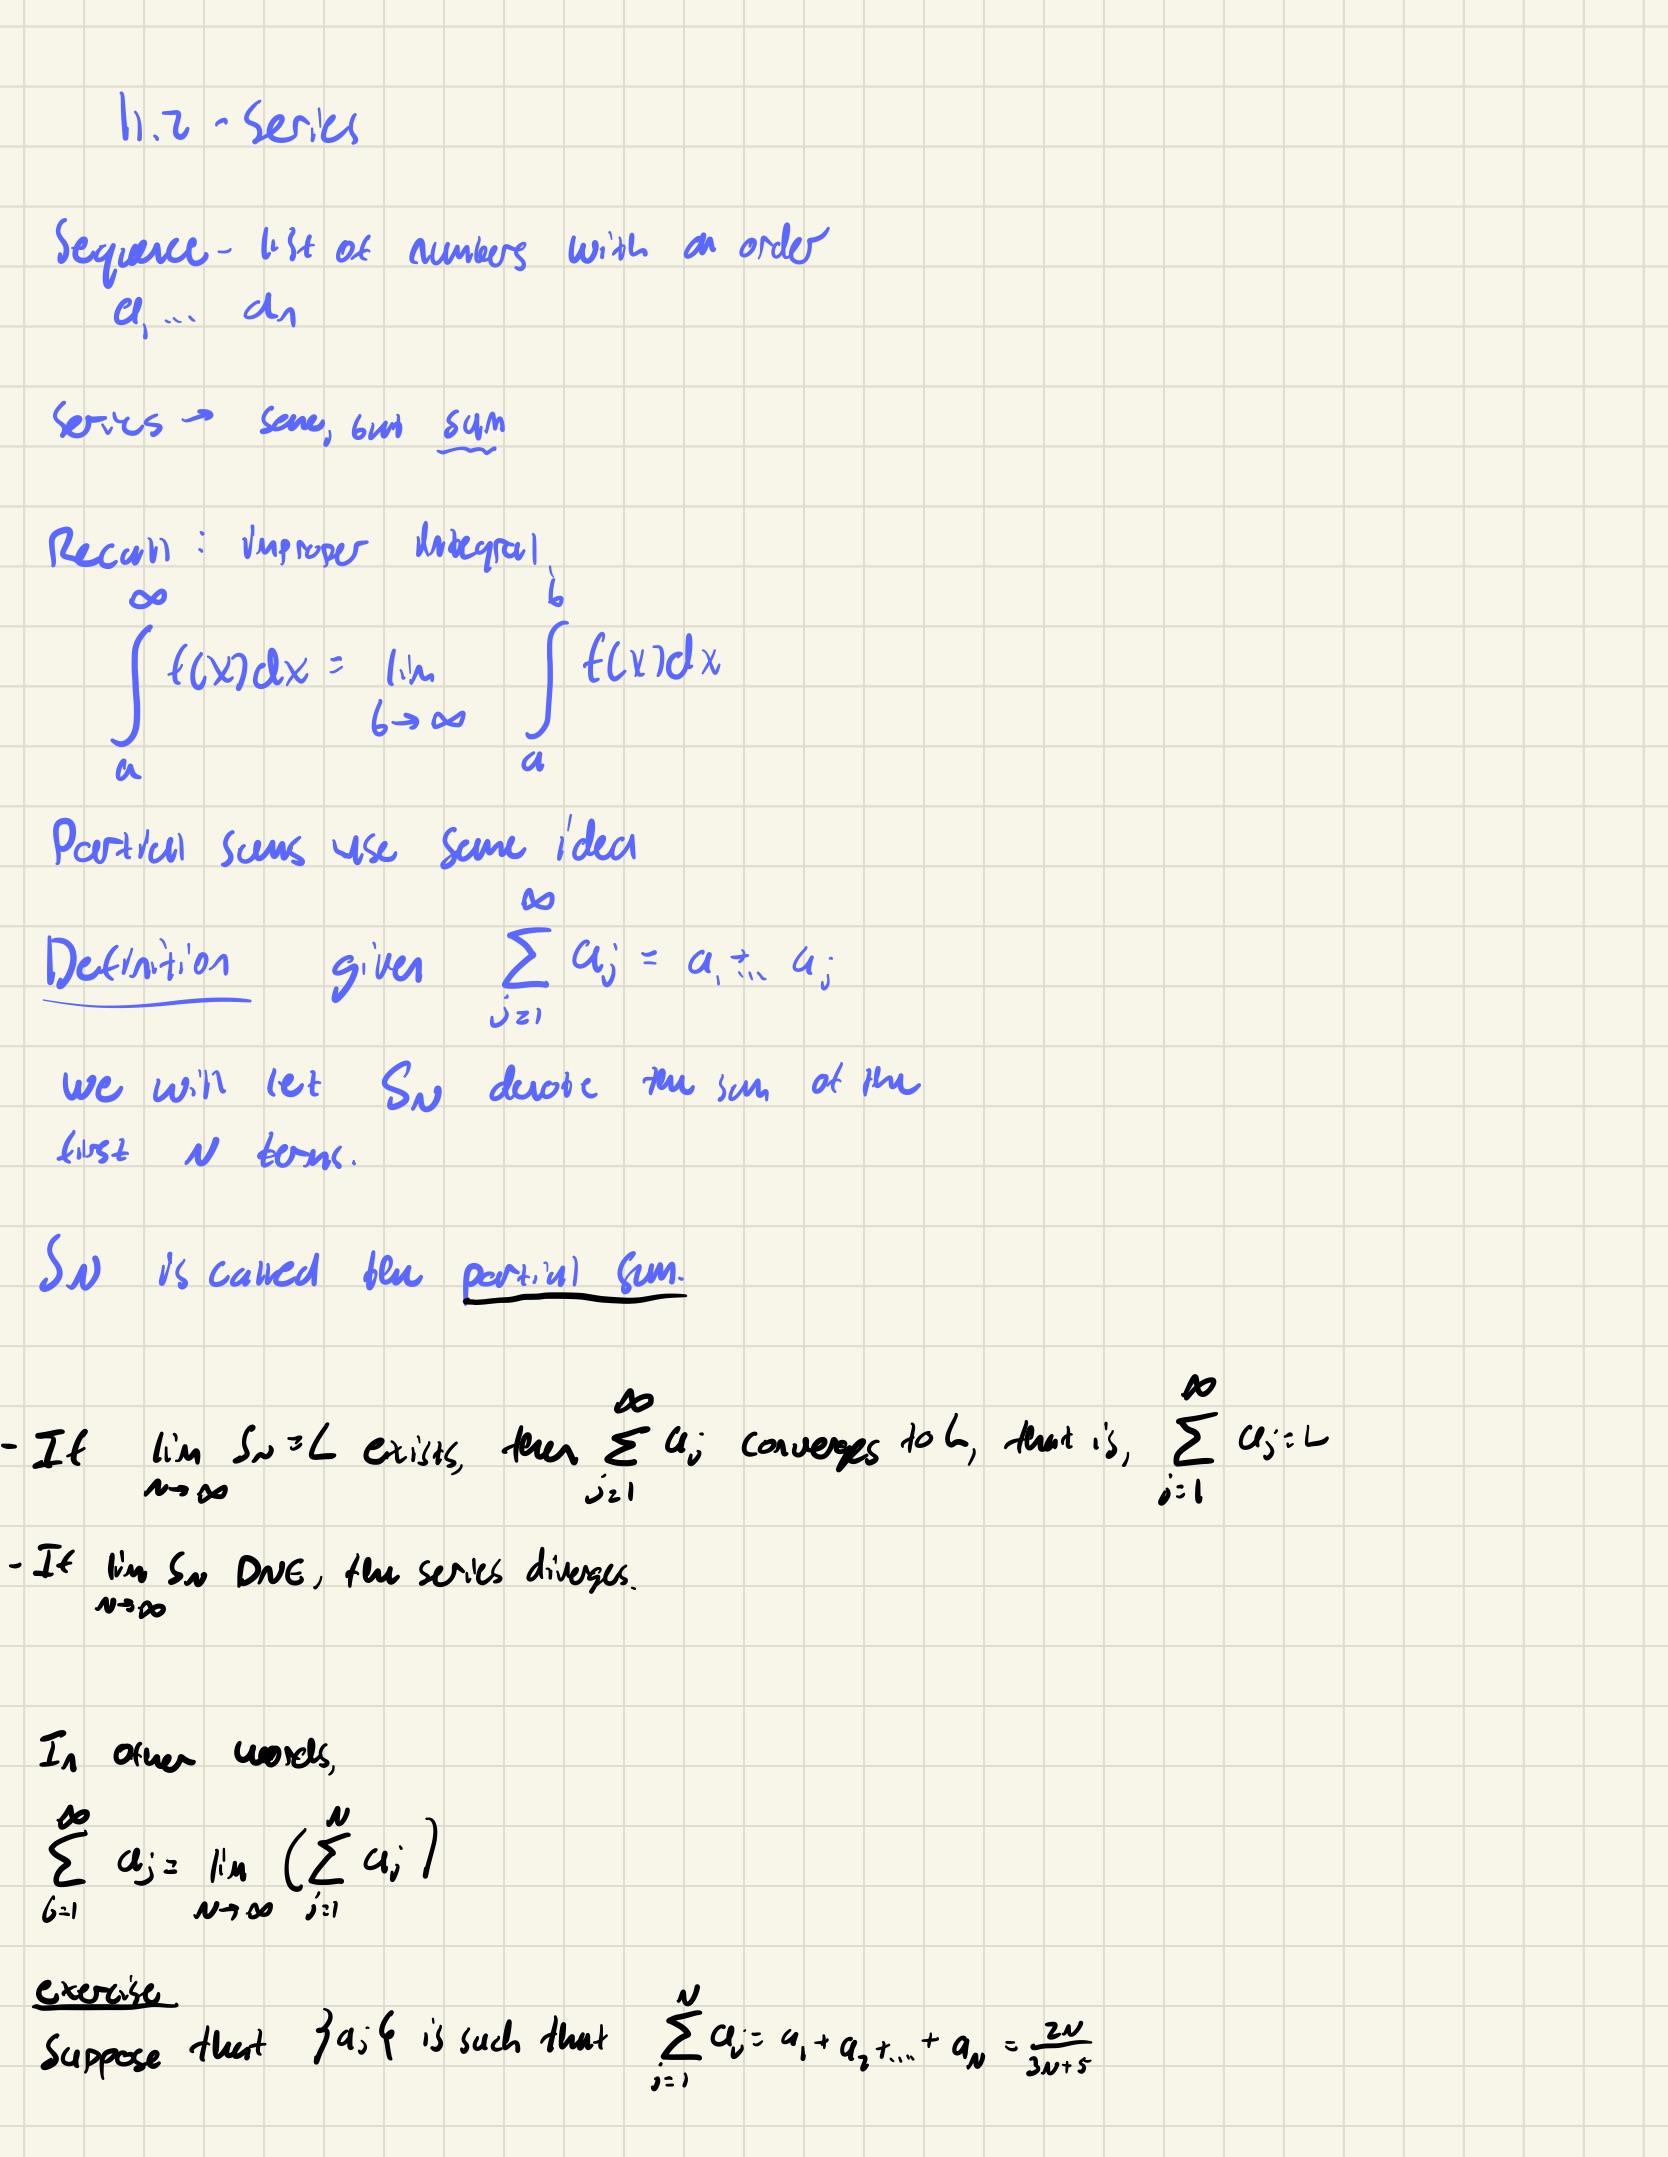 11.2 - Series
Sequence - list of numbers with an order
a₁ ... aₙ
Series → same, but sum
Recall : improper integral
∫_a^∞ f(x)dx = lim_{b→∞} ∫_a^b f(x)dx
Partial sums use same idea
Definition given ∑_{j=1}^∞ a_j = a₁ + ... a_j
we will let S_N denote the sum of the
first N terms.
S_N is called the partial sum.
- If lim_{N→∞} S_N = L exists, then ∑_{j=1}^∞ a_j converges to L, that is, ∑_{j=1}^∞ a_j = L
- If lim_{N→∞} S_N DNE, the series diverges.
In other words,
∑_{6=1}^∞ a_j = lim_{N→∞} (∑_{j=1}^N a_j)
exercise
Suppose that }a_j{ is such that ∑_{j=1}^N a_j = a₁ + a₂ + .... + a_N = 2N/(3N+5)